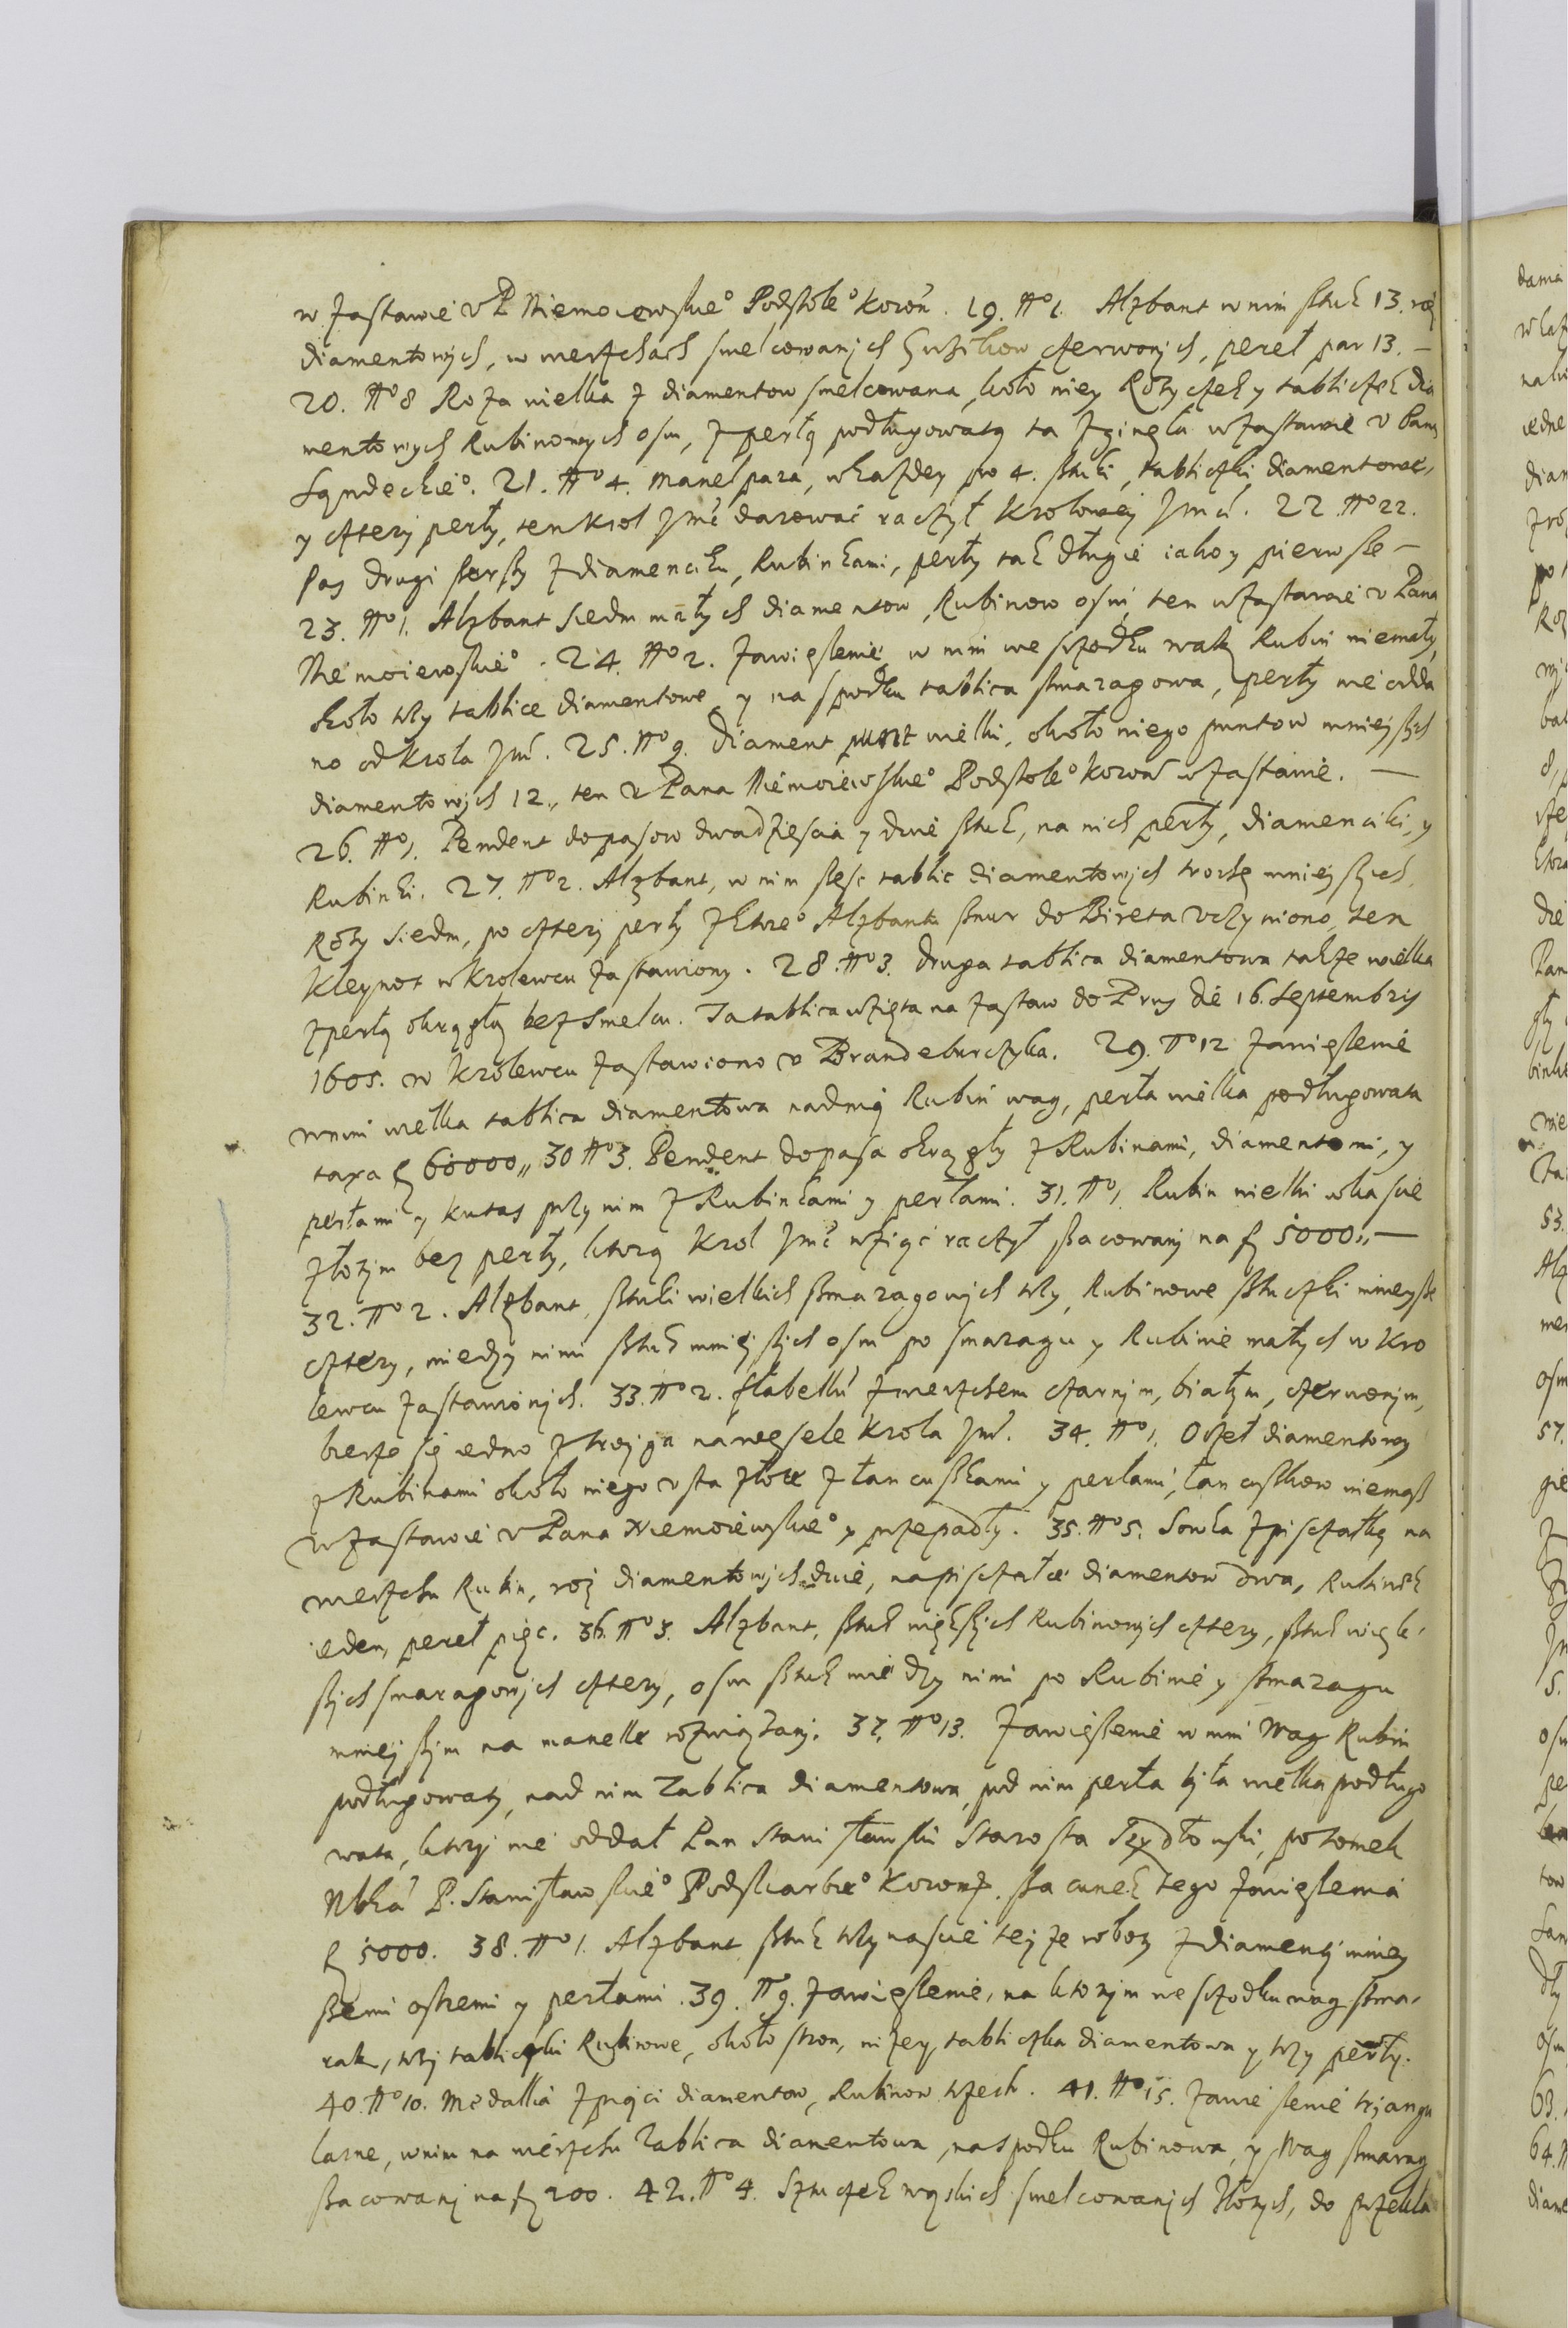 w zastawie v P Niemoiewskie° Podstole° Koron. 19. N°1. Alzbant w nim sztuk 13. roż
diamentowych, w wierzchach smelcowanych Guzikow czerwonych, pereł par 13. —
20. N°8 Roża wielka z diamentow smelcowana, koło niey Rożyczek y tabliczek dia
mentowych Rubinowych osm, z perłą podługowatą ta zginęła w zastawie v Pana
Sądeckie°. 21. N°4. Manel para, w każdey po 4. sztuki, tabliczki diamentowe,
y cztery perły, ten Krol Jmć darować raczył Krolowey Jmci. 22. N°22.
Pas drugi szerszy z diamenciku, Rubinkami, perły tak długie iako y pierwsze —
23. N°1. Alzbant siedm małych diamentow, Rubinow osm, ten w zastawie v Pana
Niemoiewskie°. 24. N°2. Zawieszenie w nim we szrodku wak Rubin niemały,
koło trzy tablice diamentowe y na spodku tablica smaragowa, perły nie odda
no od Krola Jmć. 25. N°9. Diament punt wielki, około niego puntow mnieyszych
diamentowych 12., ten v Pana Niemoiewskie° Podstole° Koron w zastawie. —
26. N°1. Pendent do pasow dwadziescia y dwie sztuk, na nich perły, diamenciki, y
Rubinki. 27. N°2. Alzbant, w nim szesc tablic diamentowych troche mnieyszych
Roży siedm, po cztery perły z ktore° Alzbantu sznur do Bireta vczyniono, ten
Kleynot w Krolewcu zastawiony. 28. N°3. Druga tablica diamentowa takze wielka
z perłą okrągłą bez smelcu. Ta tablica wzięta na zastaw do Prus die 16. Septembris
1605. w Krolewcu zastawiono v Brandeburczyka. 29. N°12 Zawieszenie
w nim wielka tablica diamentowa nad nią Rubin wag, perła wielka podługowata
taxa f 60000,, 30 N°3. Pendent do pasa okrągły z Rubinami, diamentami, y
perłami y kutas przy nim z Rubinkami y perłami. 31. N°1. Rubin wielki w kascie
złotym bez perły, ktorą Krol Jmć wziąć raczył szacowany na f 5000,, —
32. N°2. Alzbant, sztuki wielkich smaragowych trzy, Rubinowe sztuczki mnieysze
cztery, miedzy nimi sztuk mnieyszych osm po smaragu y Rubinie małych w Kro
lewcu zastawionych. 33. N°2. flabellu z wierzchem czarnym, białym, czerwonym,
bierze się iedno z troyga na wesele Krola Jmć. 34. N°1. Orzeł diamentowy
z Rubinami około niego vsta złote z łancuszkami y perłami, łancuszkow niemasz
w zastawie v Pana Niemoiewskie° y przepadły. 35. N°5. Sowka z piszczałką na
wierzchu Rubin, roż diamentowych dwie, na piszczałce diamentow dwa, Rubinek
ieden, pereł pięc. 36. N°3. Alzbant, sztuk większych Rubinowych cztery, sztuk więk-
szych smaragowych cztery, osm sztuk miedzy nimi po Rubinie y smaragu
mnieyszym na manelle rozwiązany. 37. N°13. Zawieszenie w nim Wag Rubin
podługowaty, nad nim Tablica diamentowa, pod nim perła była wielka podługo
wata, ktorj nie oddał Pan Stanisławski Starosta Tzydłowski, potomek
Nbka P. Stanisławskie° Podskarbie° Koronż. szacunek tego zawieszenia
f 5000. 38. N°1. Alzbant sztuk trzynascie teyze roboty z diamenty mniey
szemi ostremi y perłami. 39. N°9. Zawieszenie, na ktorym we szrodku wag sma-
rak, trzy tabliczki Rubinowe, około stron, niżey tabliczka diamentowa y trzy perły.
40. N°10. Medallia z pięci diamentow, Rubinow trzech. 41. N°15. Zawieszenie tryangu
larne, w nim na wierzchu Tablica diamentowa, na spodku Rubinowa, y Wag smarag
szacowany na f 200. 42. N°4. Sztuczek węskich smelcowanych złotych, do przekła